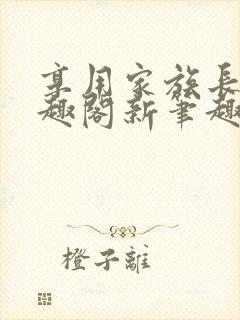 享用家族長
趣閣新筆趣
橙子離